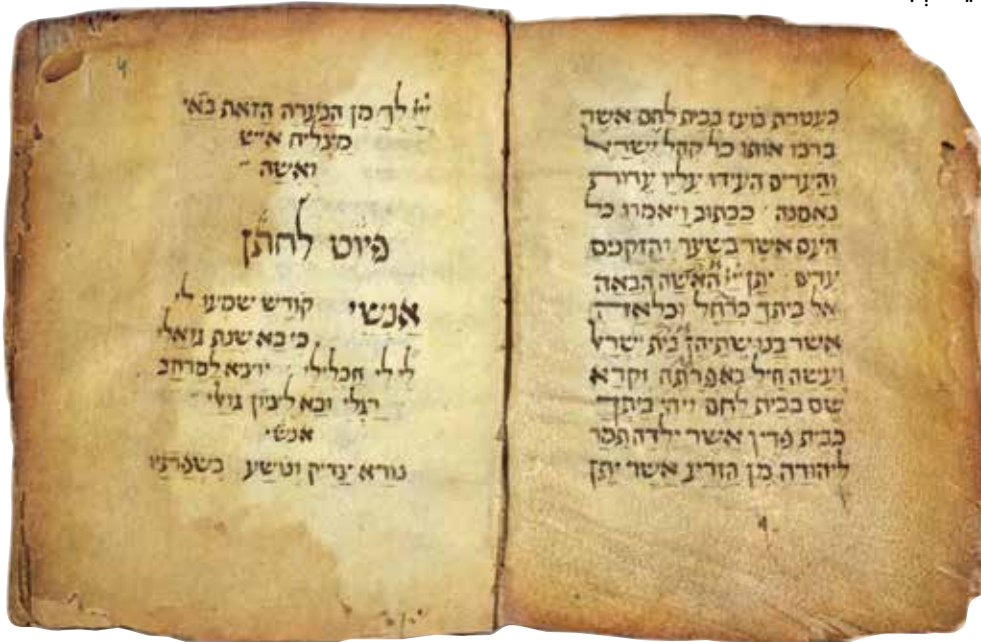 כעטרת בועז בבית לחם אשר
ברכו אותו כל קהל ישראל
והעדים העידו עליו עדות
נאמנה ככתוב ויאמרו כל
העם אשר בשער והזקנים
עדים יתן ייי האשה הבאה
אל ביתך כרחל וכלאה
אשר בנו שתיהן בית ישראל
ועשה חיל באפרתה וקרא
שם בבית לחם ויהי ביתך
כבית פרץ אשר ילדה תמר
ליהודה מן הזרע אשר יתן
ייי לך מן הנערה הזאת
איש
ואשה
פיוט לחתן
אנשי קודש שמעו לי
כי בא שנת גואלי
לי לי חכלילי יוציא למרחב
רגלי ובא לציון גואלי
אנשי
נורא צדיק ונושע
4